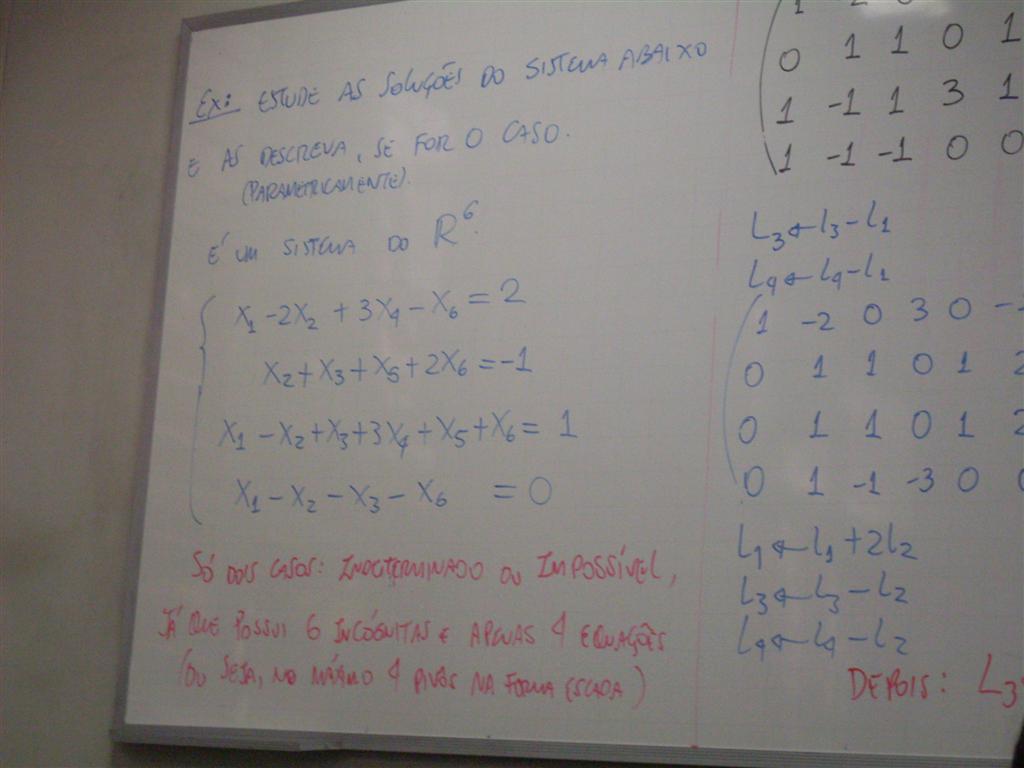 Ex: ESTUDE AS SOLUÇÕES DO SISTEMA ABAIXO
E AS DESCREVA, SE FOR O CASO.
(PARAMETRICAMENTE).
É UM SISTEMA DO R⁶.
X₁ - 2X₂ + 3X₄ - X₆ = 2
X₂ + X₃ + X₅ + 2X₆ = -1
X₁ - X₂ + X₃ + 3X₄ + X₅ + X₆ = 1
X₁ - X₂ - X₃ - X₆ = 0
SÓ DOIS CASOS: INDETERMINADO OU IMPOSSÍVEL,
JÁ QUE POSSUI 6 INCÓGNITAS E APENAS 4 EQUAÇÕES
(OU SEJA, NO MÁXIMO 4 PIVÔS NA FORMA ESCADA)
1 -2 0
0 1 1 0 1
1 -1 1 3 1
1 -1 -1 0 0
L₃ ← L₃ - L₁
L₄ ← L₄ - L₁
1 -2 0 3 0
0 1 1 0 1 2
0 1 1 0 1 2
0 1 -1 -3 0 0
L₁ ← L₁ + 2L₂
L₃ ← L₃ - L₂
L₄ ← L₄ - L₂
DEPOIS: L₃